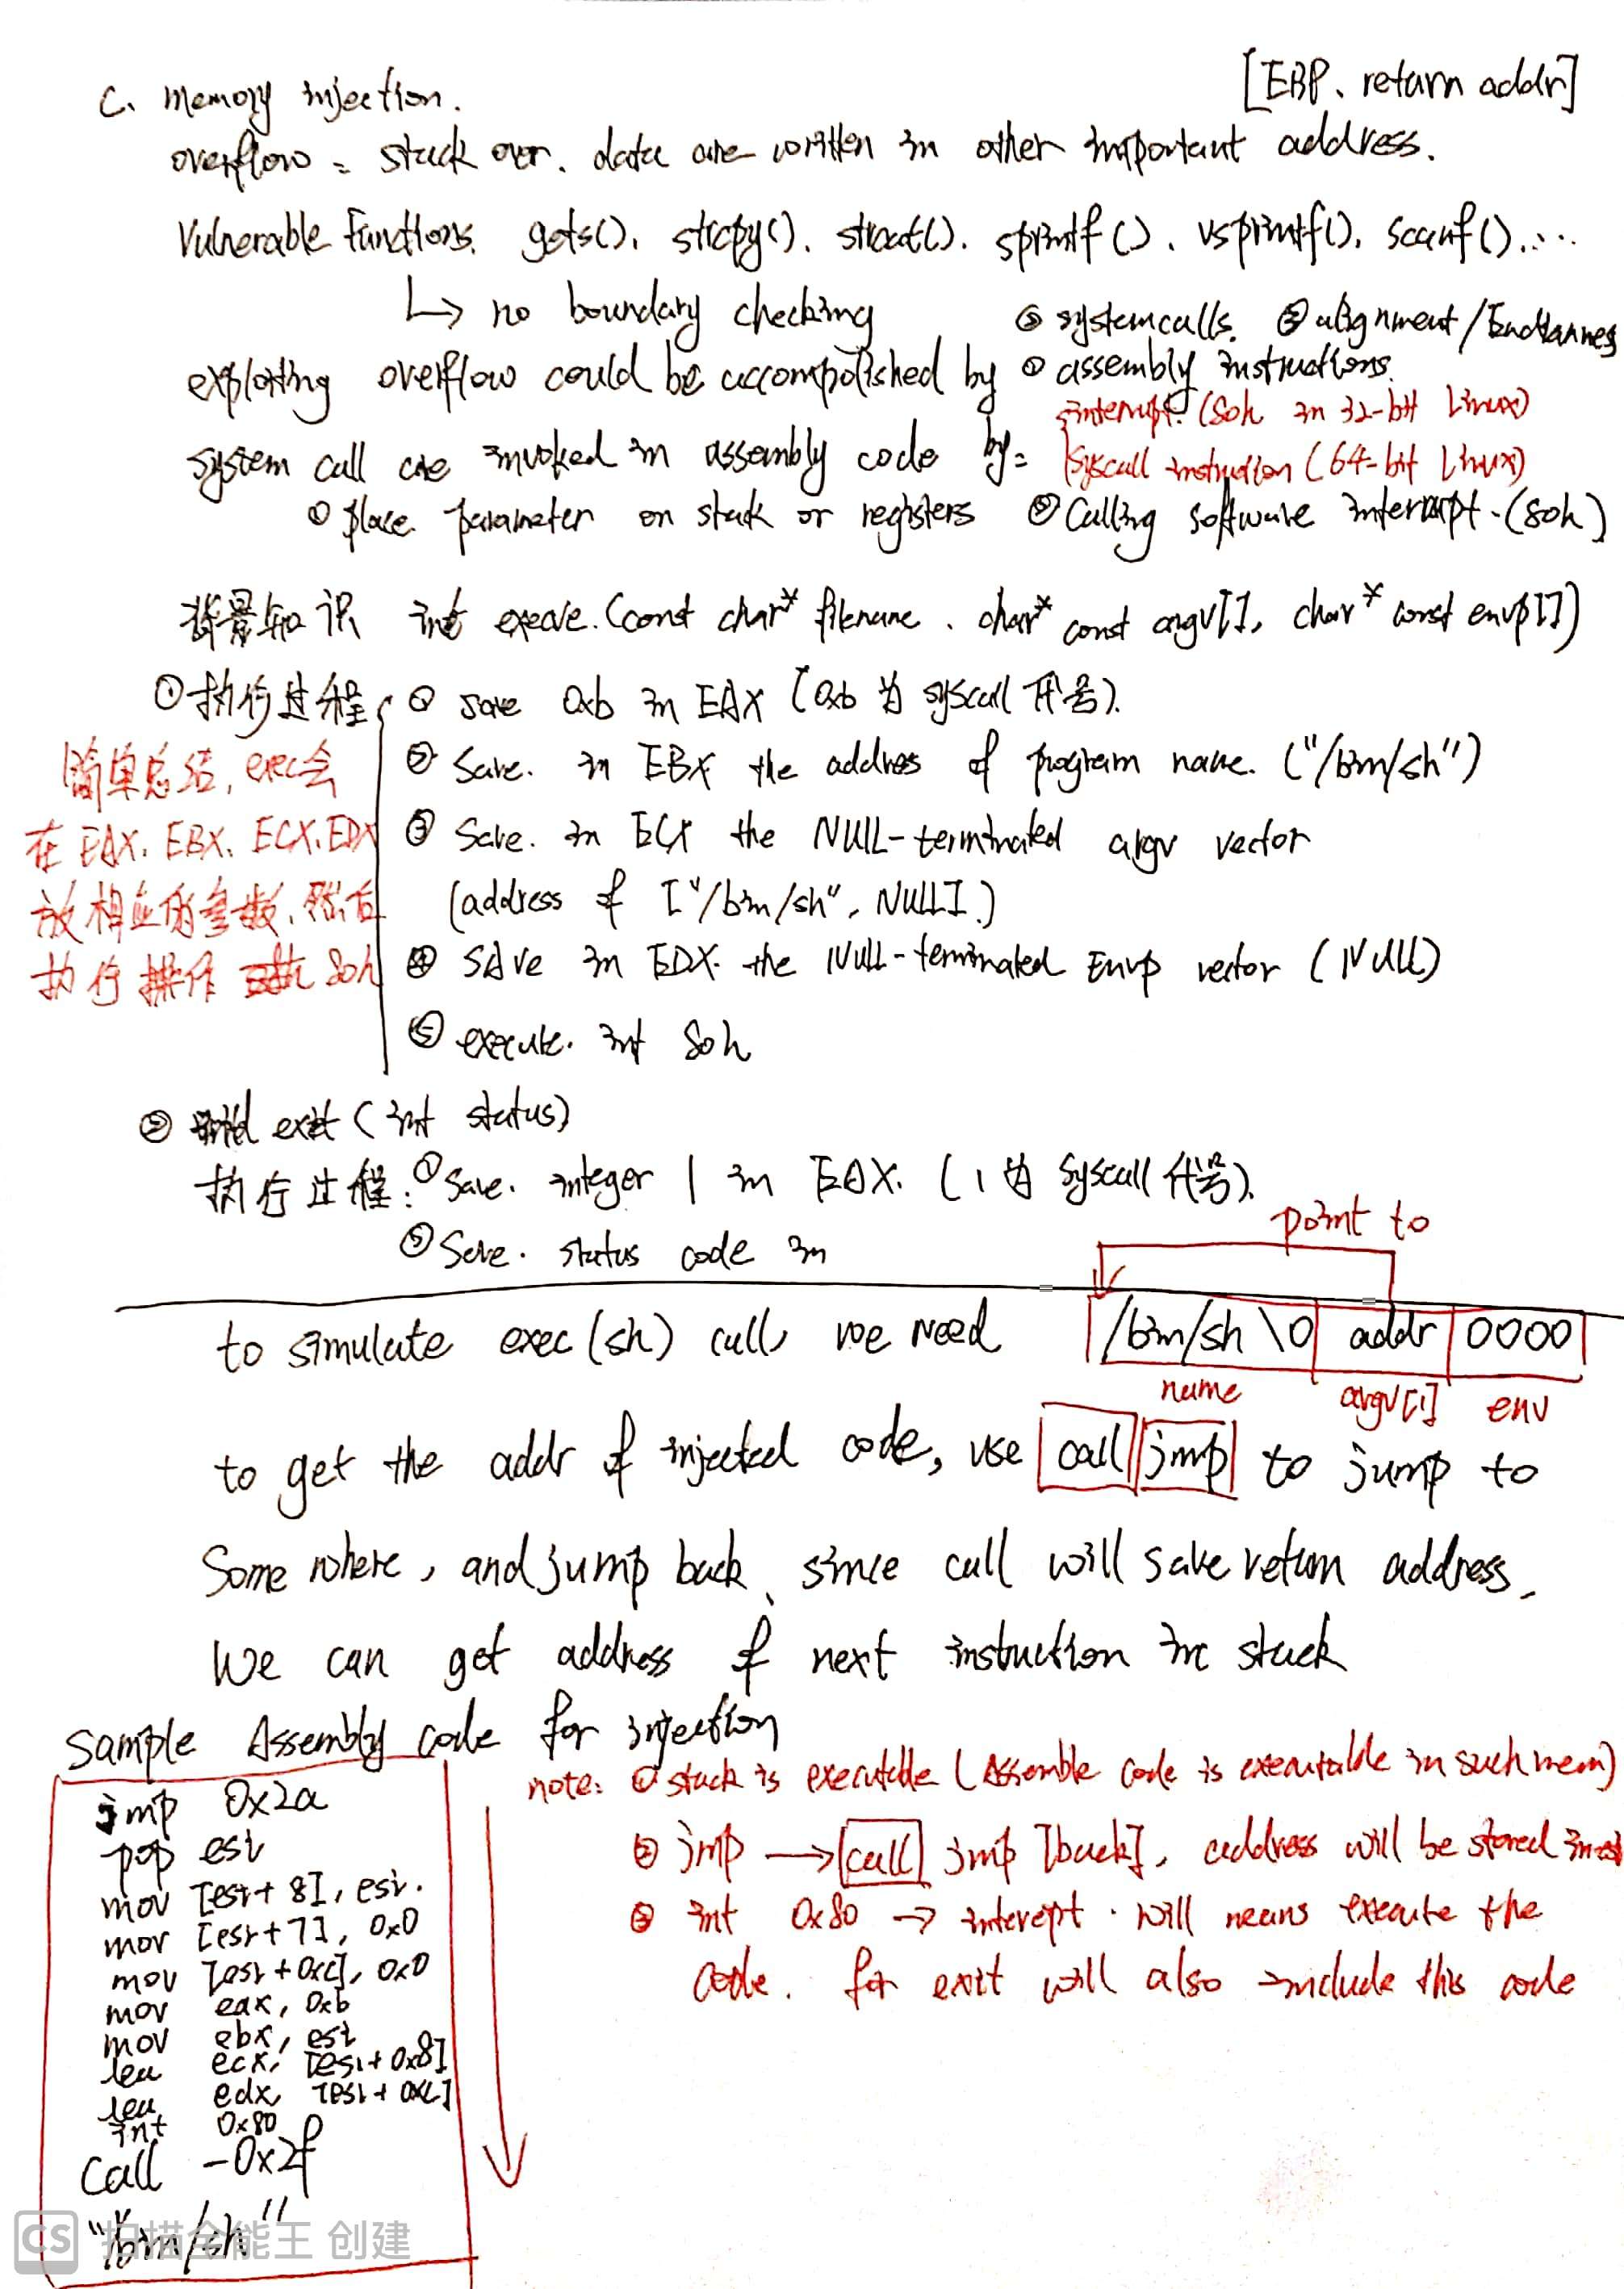 C. memory injection.
[EBP、return addr]
overflow = stack over. data are written in other important address.
Vulnerable Functions. gets(). strcpy(). strcat(). sprintf(). vsprintf(). scanf().....
↳ no boundary checking
③ systemcalls. ② alignment/Endianness
exploiting overflow could be accompolished by ① assembly instructions.
interrupt (80h in 32-bit Linux)
system call are invoked in assembly code by=
syscall instruction (64-bit Linux)
① place parameter on stack or registers ② Calling software interrupt. (80h)
背景知识 int execve. (const char* filename. char* const argv[], char* const envp[])
①执行过程
① save 0xb in EAX (0xb 为 syscall 代号).
② Save. in EBX the address of program name. ("/bin/sh")
③ Save. in ECX the NULL-terminated argv vector
(address of ["/bin/sh", NULL].)
④ SAve in EDX. the NULL-terminated Envp vector (NULL)
⑤ execute. int 80h
简单总结, exec会
在 EAX. EBX. ECX. EDX
放相应的参数, 然后
执行操作 80h
② exit (int status)
执行过程: ① Save. integer 1 in EAX. (1 为 syscall 代号).
② Save. status code in
point to
to simulate exec(sh) call, we need
/bin/sh \0 addr 0000
name argv[1] env
to get the addr of injected code, use call jmp to jump to
Some where, and jump back, since call will save return address,
We can get address of next instuction in stack
Sample Assembly code for injection
jmp 0x2a
pop esi
mov [esi+8], esi.
mov [esi+7], 0x0
mov [esi+0xc], 0x0
mov eax, 0xb
mov ebx, esi
lea ecx, [esi+0x8]
lea edx, [esi+0xc]
int 0x80
Call -0x2f
"/bin/sh"
note: ① stack is executable (Assemble code is executable in such mem)
② jmp → call jmp [back], address will be stored in esi
③ int 0x80 → interept. will means execute the
code. for exit will also include this code
CS 扫描全能王 创建